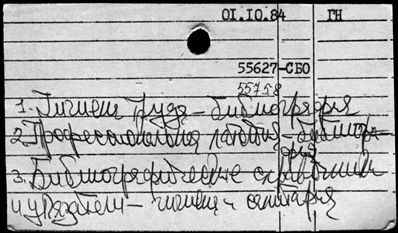 01.10.84 ГН
55627-СБО
55758
1. Гигиена труда - библиография
2. Профессиональная патология - библиогра-
фия
3. Библиографические справочники
4. Указатели - гигиена и санитария